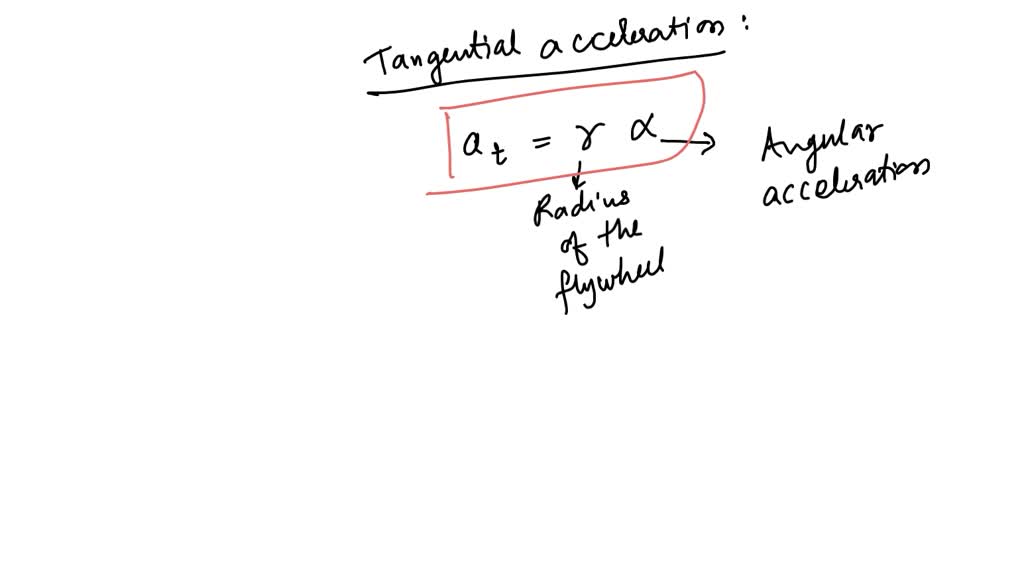 Tangential acceleration :
a_t = r α → Angular acceleration
↓
Radius
of the
flywheel